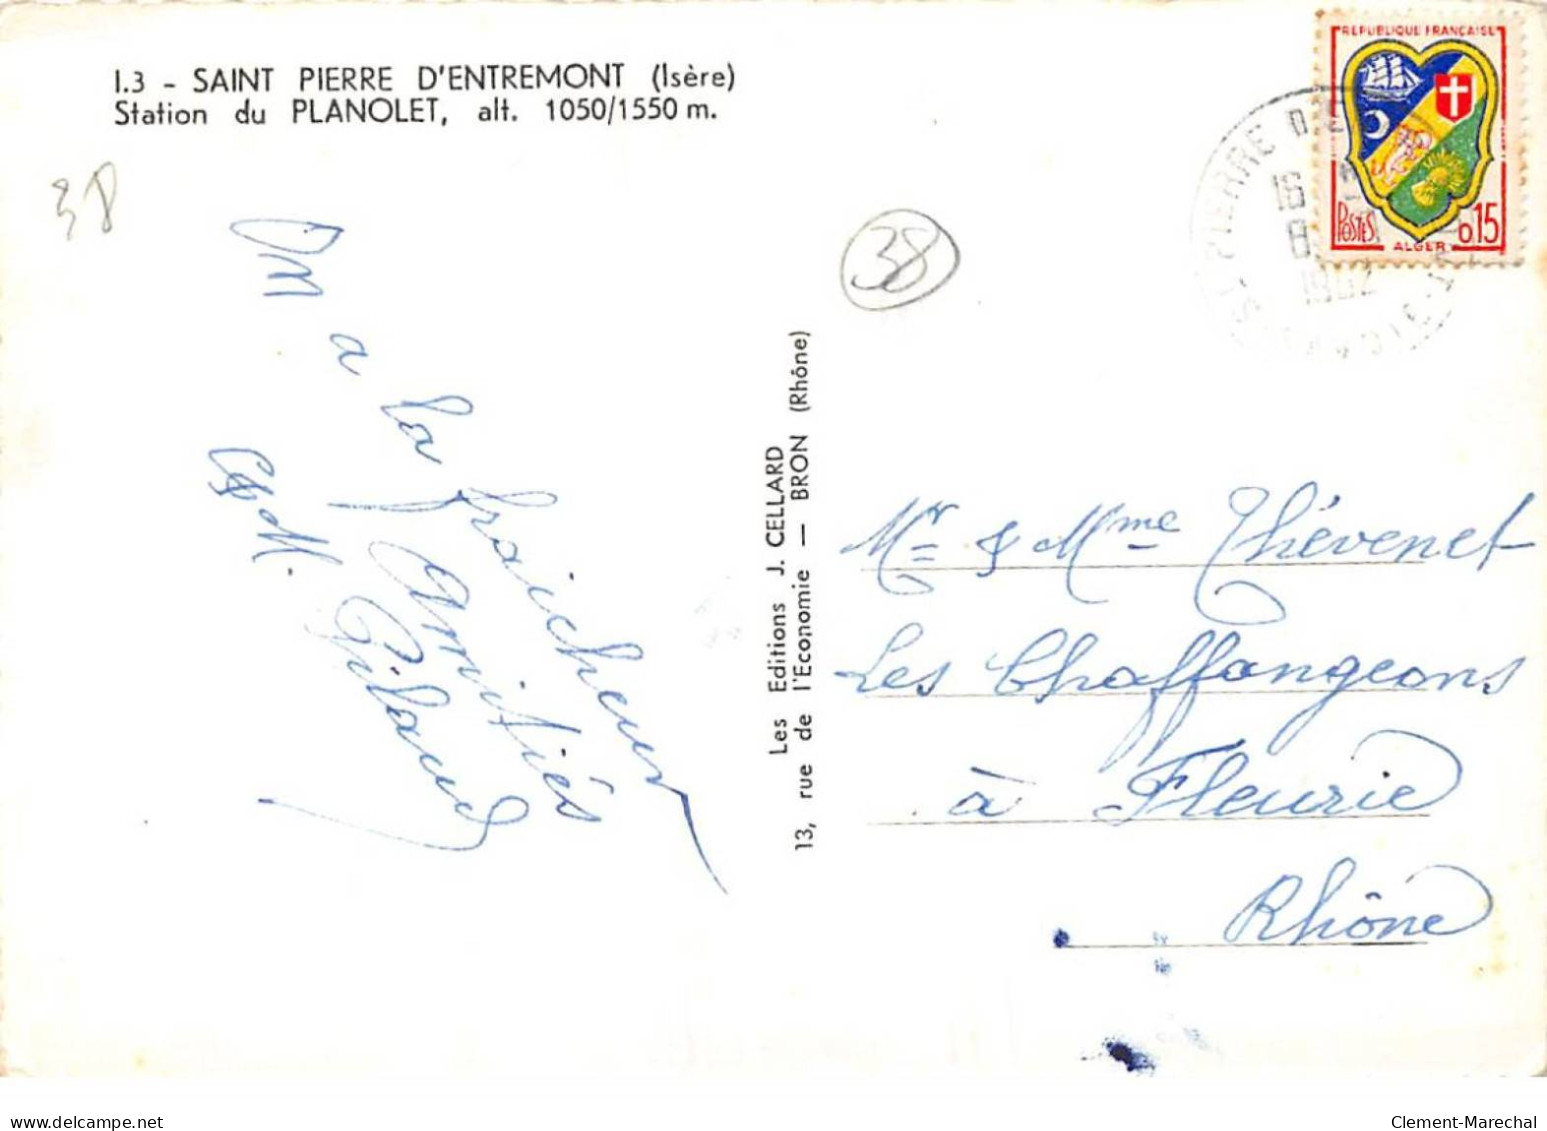 I.3 - SAINT PIERRE D'ENTREMONT (Isère)
Station du PLANOLET, alt. 1050/1550 m.
38
38
On a la fraicheur
Amitiés
M. Pilaud
Les Editions J. CELLARD
13, rue de l'Economie — BRON (Rhône)
REPUBLIQUE FRANÇAISE
POSTES
ALGER
0,15
PIERRE D'E
16
8
1962
Mr & Mme Thévenet
Les Chaffangeons
à Fleurie
Rhône
delcampe.net
Clement-Marechal